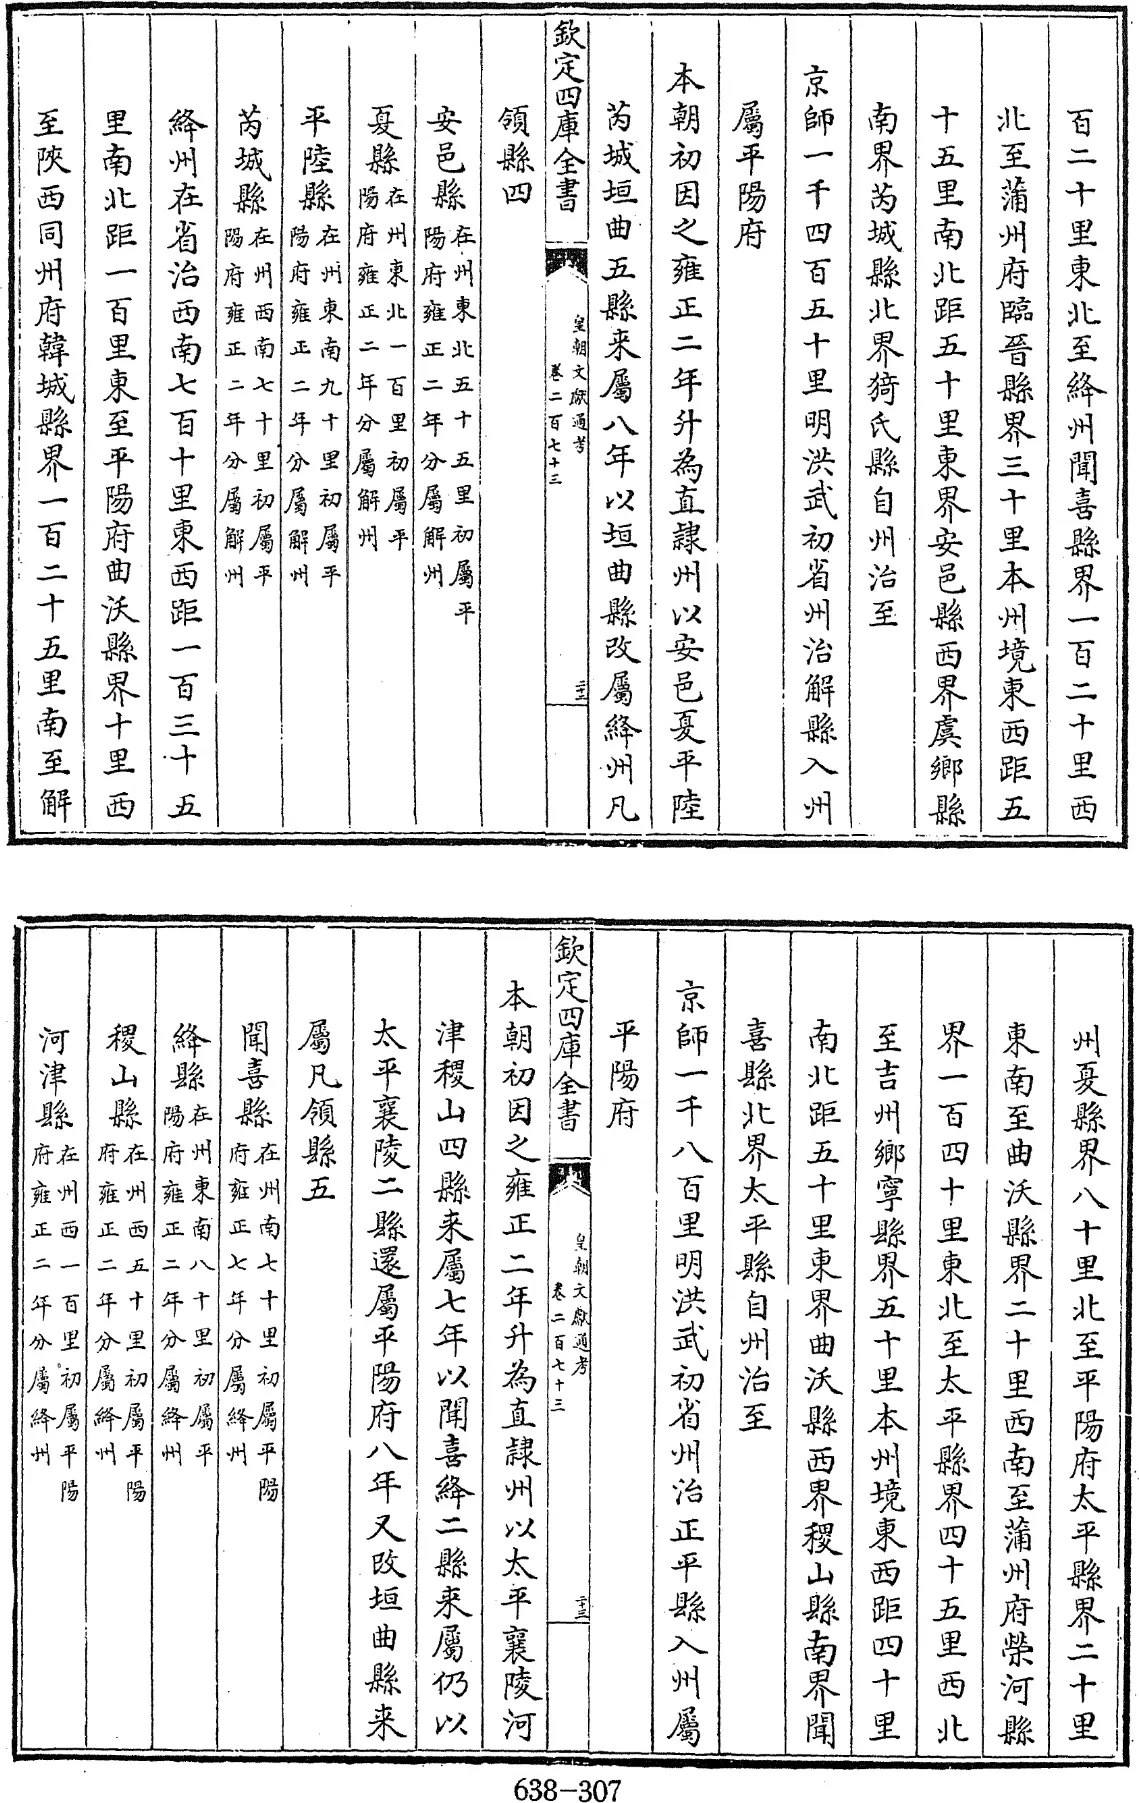 百二十里東北至絳州聞喜縣界一百二十里西
北至蒲州府臨晉縣界三十里本州境東西距五
十五里南北距五十里東界安邑縣西界虞鄉縣
南界芮城縣北界猗氏縣自州治至
京師一千四百五十里明洪武初省州治解縣入州
屬平陽府
本朝初因之雍正二年升為直隷州以安邑夏平陸
芮城垣曲五縣来屬八年以垣曲縣改屬絳州凡
欽定四庫全書
皇朝文獻通考
卷二百七十三
二十二
領縣四
安邑縣在州東北五十五里初屬平
陽府雍正二年分屬解州
夏縣在州東北一百里初屬平
陽府雍正二年分屬解州
平陸縣在州東南九十里初屬平
陽府雍正二年分屬解州
芮城縣在州西南七十里初屬平
陽府雍正二年分屬解州
絳州在省治西南七百十里東西距一百三十五
里南北距一百里東至平陽府曲沃縣界十里西
至陝西同州府韓城縣界一百二十五里南至解
州夏縣界八十里北至平陽府太平縣界二十里
東南至曲沃縣界二十里西南至蒲州府榮河縣
界一百四十里東北至太平縣界四十五里西北
至吉州鄉寧縣界五十里本州境東西距四十里
南北距五十里東界曲沃縣西界稷山縣南界聞
喜縣北界太平縣自州治至
京師一千八百里明洪武初省州治正平縣入州屬
平陽府
欽定四庫全書
皇朝文獻通考
卷二百七十三
二十三
本朝初因之雍正二年升為直隷州以太平襄陵河
津稷山四縣来屬七年以聞喜絳二縣来屬仍以
太平襄陵二縣還屬平陽府八年又改垣曲縣来
屬凡領縣五
聞喜縣在州南七十里初屬平陽
府雍正七年分屬絳州
絳縣在州東南八十里初屬平
陽府雍正二年分屬絳州
稷山縣在州西五十里初屬平陽
府雍正二年分屬絳州
河津縣在州西一百里初屬平陽
府雍正二年分屬絳州
638-307